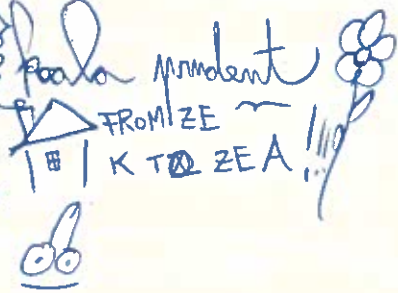 koala prudent
FROM ZE
K TO ZE A!!!